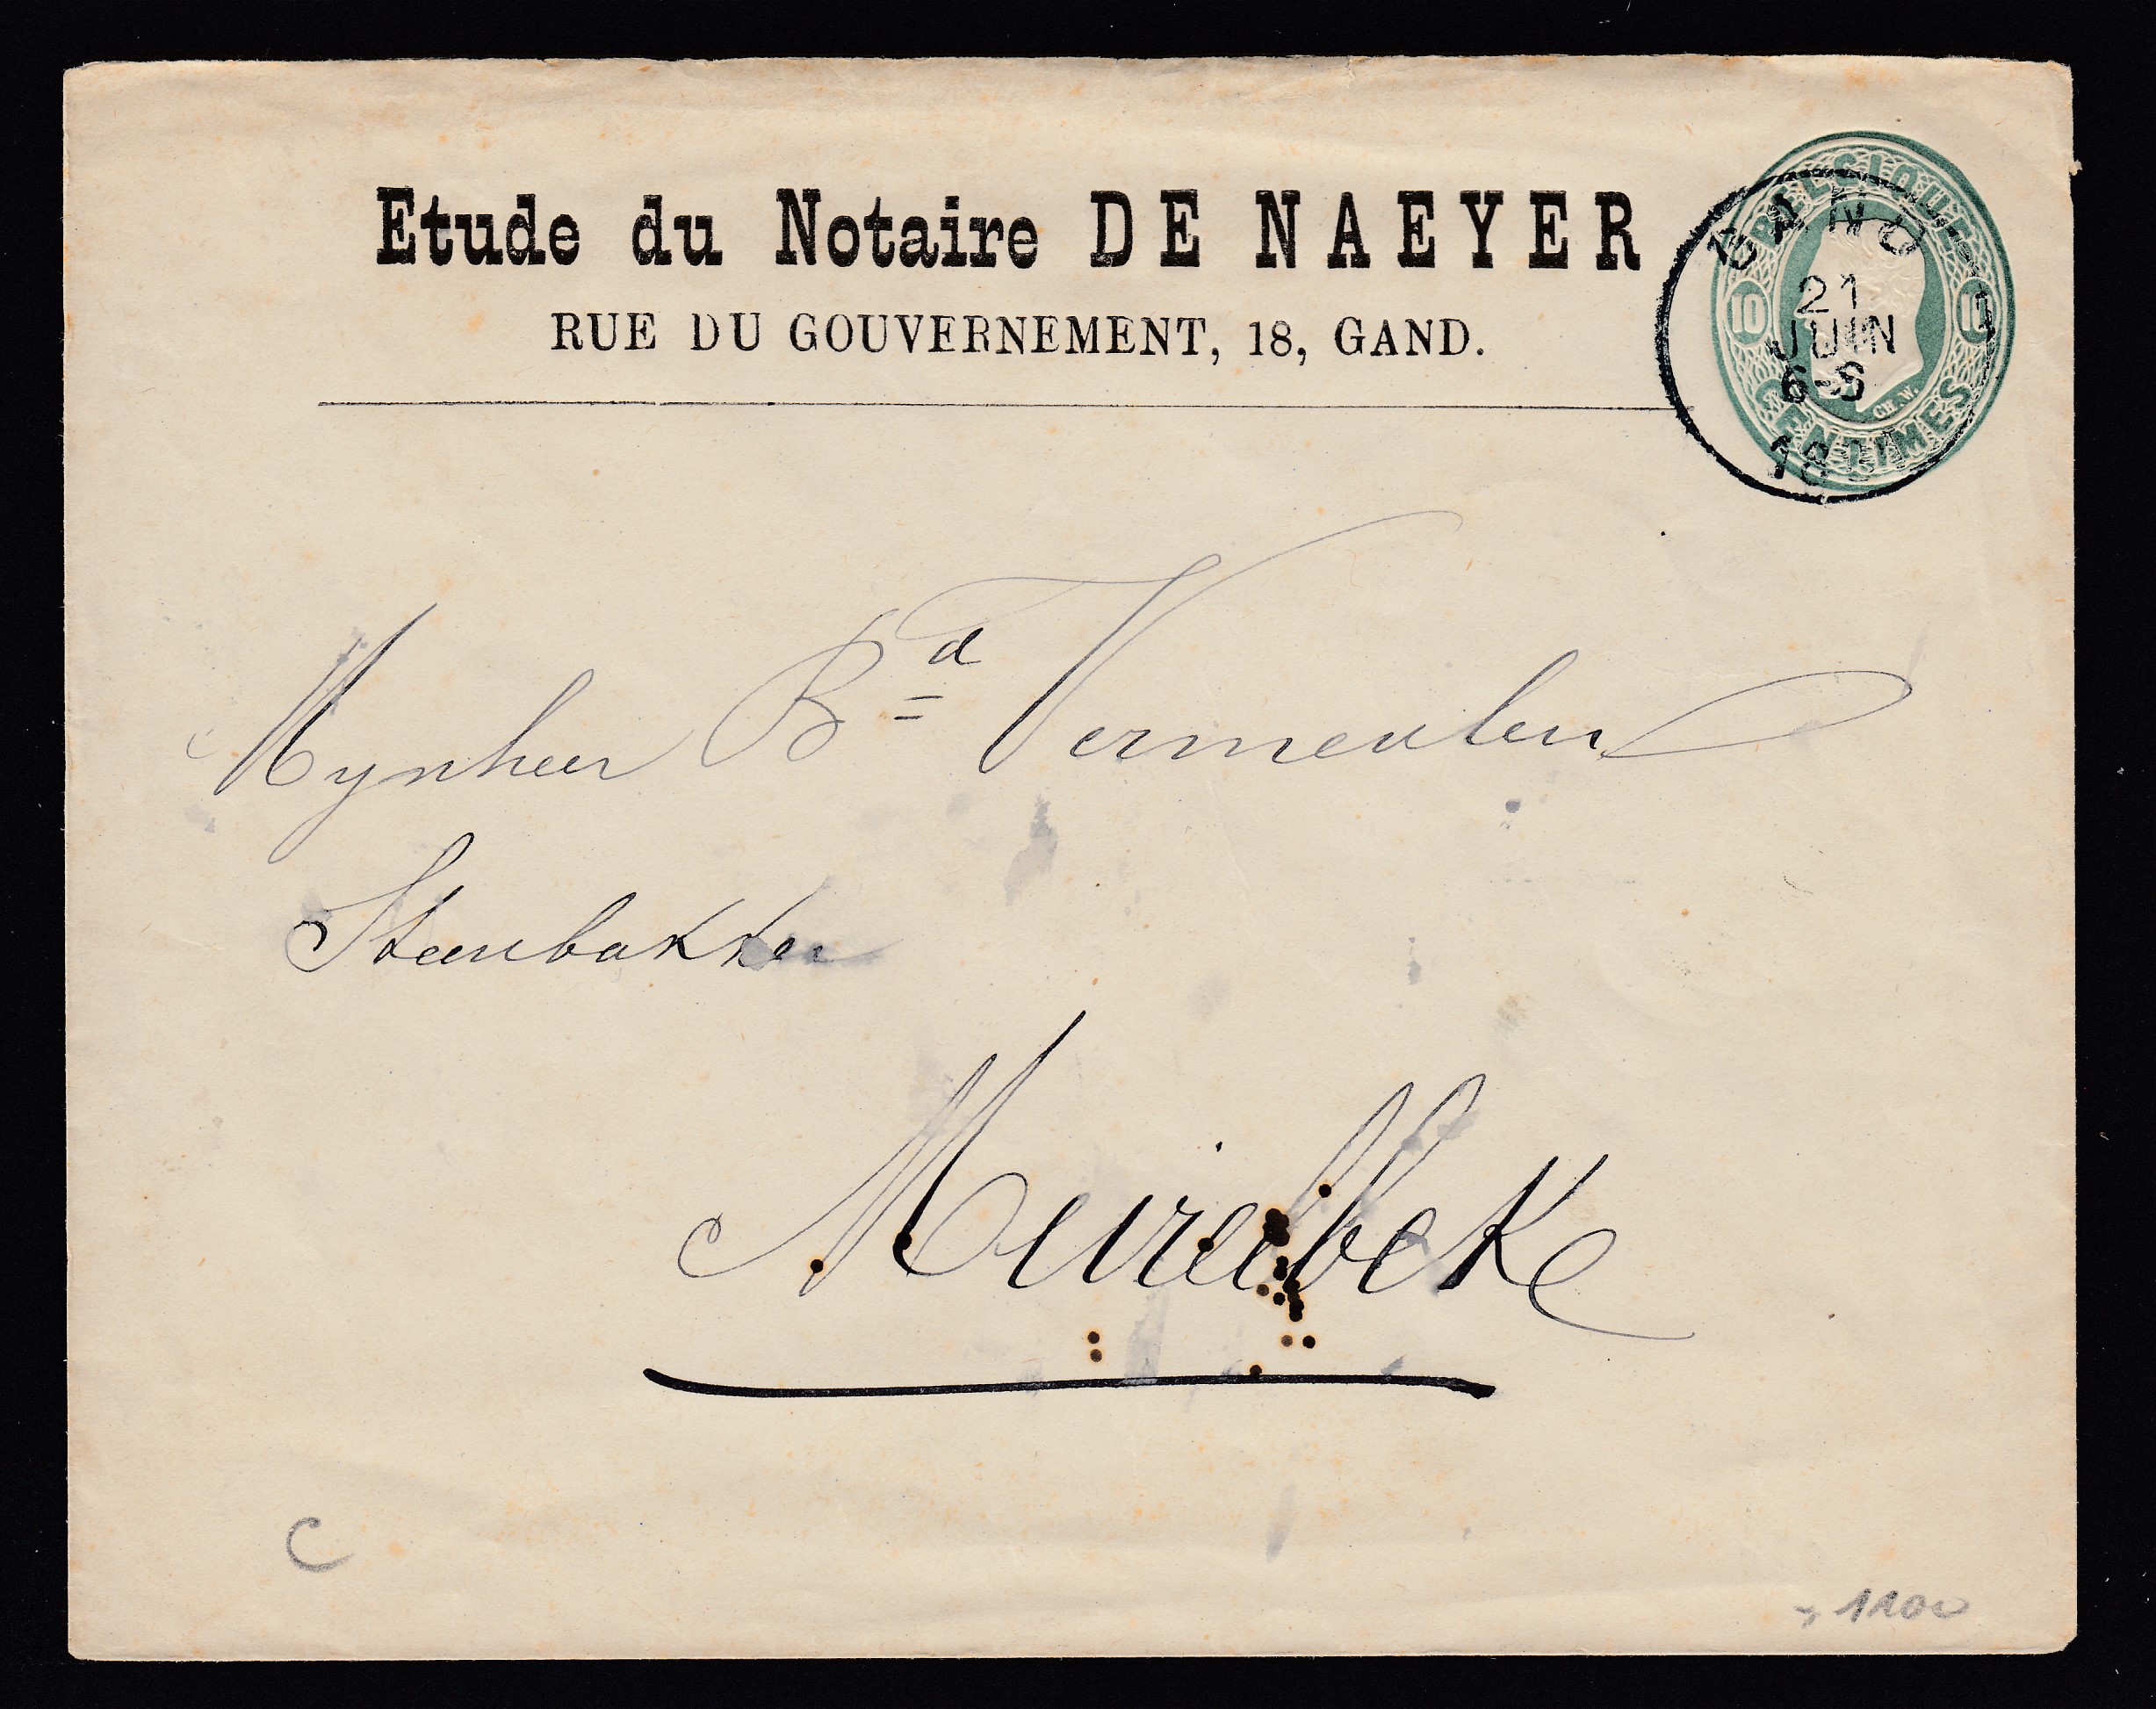 Etude du Notaire DE NAEYER
RUE DU GOUVERNEMENT, 18, GAND.
BELGIQUE
10 10
CENTIMES
CH. W.
GAND
21
JUIN
6-S
Mynheer Bd Vermeulen
Steenbakker
Meirelbeke
C